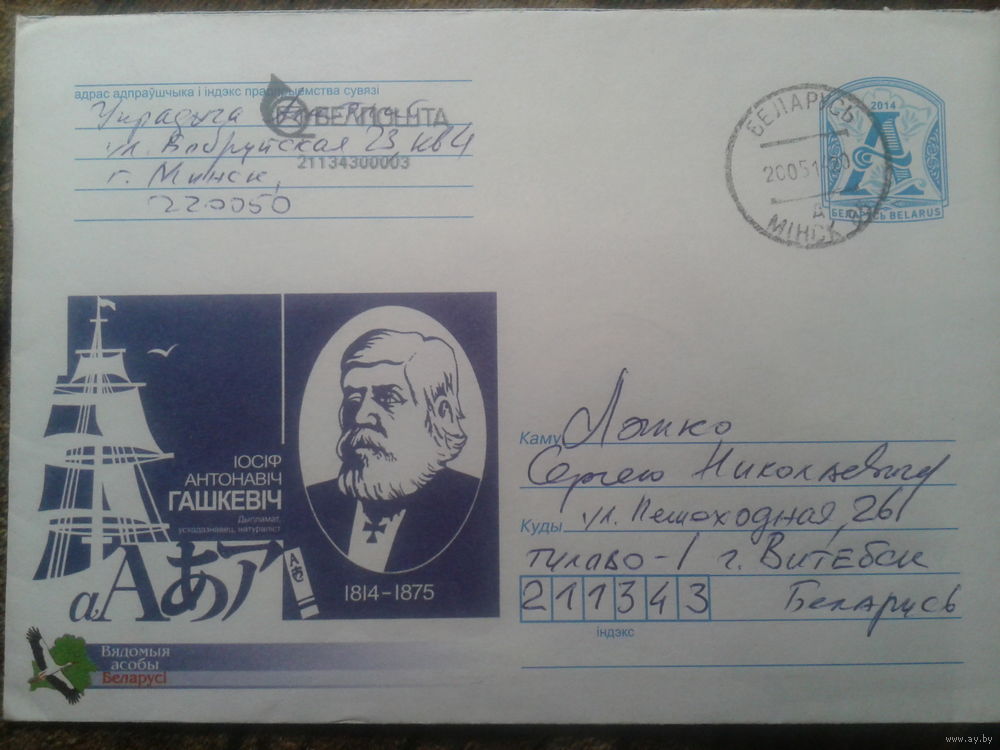 адрас адпраўшчыка і індэкс прадпрыемства сувязі
БЕЛПОШТА
ул. Бобруйская 23, кв 4
21134300003
г. Минск,
220050
БЕЛАРУСЬ
МІНСК
2014
А
БЕЛАРУСЬ BELARUS
ІОСІФ
АНТОНАВІЧ
ГАШКЕВІЧ
Дыпламат,
усходазнавец, натураліст
аАあア
1814–1875
Вядомыя
асобы
Беларусі
Каму Ляшко
Сергею Николаевичу
Куды ул. Пешоходная, 26
г. Витебск
211343 Беларусь
індэкс
www.ay.by